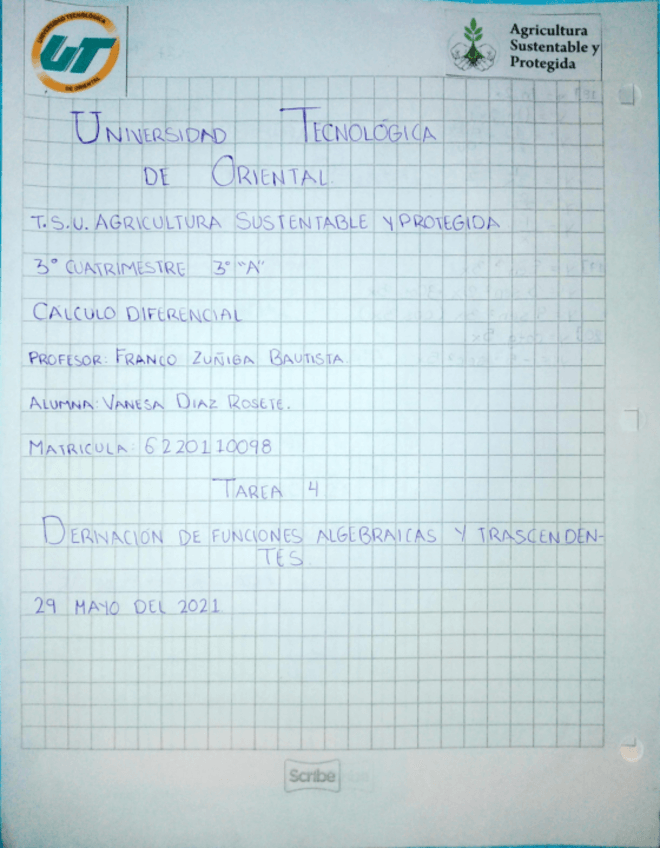 UNIVERSIDAD TECNOLÓGICA
DE ORIENTAL
UT
Agricultura
Sustentable y
Protegida
UNIVERSIDAD TECNOLÓGICA
DE ORIENTAL.
T.S.U. AGRICULTURA SUSTENTABLE Y PROTEGIDA
3° CUATRIMESTRE 3° "A"
CÁLCULO DIFERENCIAL
PROFESOR: FRANCO ZUÑIGA BAUTISTA
ALUMNA: VANESA DIAZ ROSETE.
MATRICULA: 6220110098
TAREA 4
DERIVACIÓN DE FUNCIONES ALGEBRAICAS Y TRASCENDEN-
TES.
29 MAYO DEL 2021
Scribe